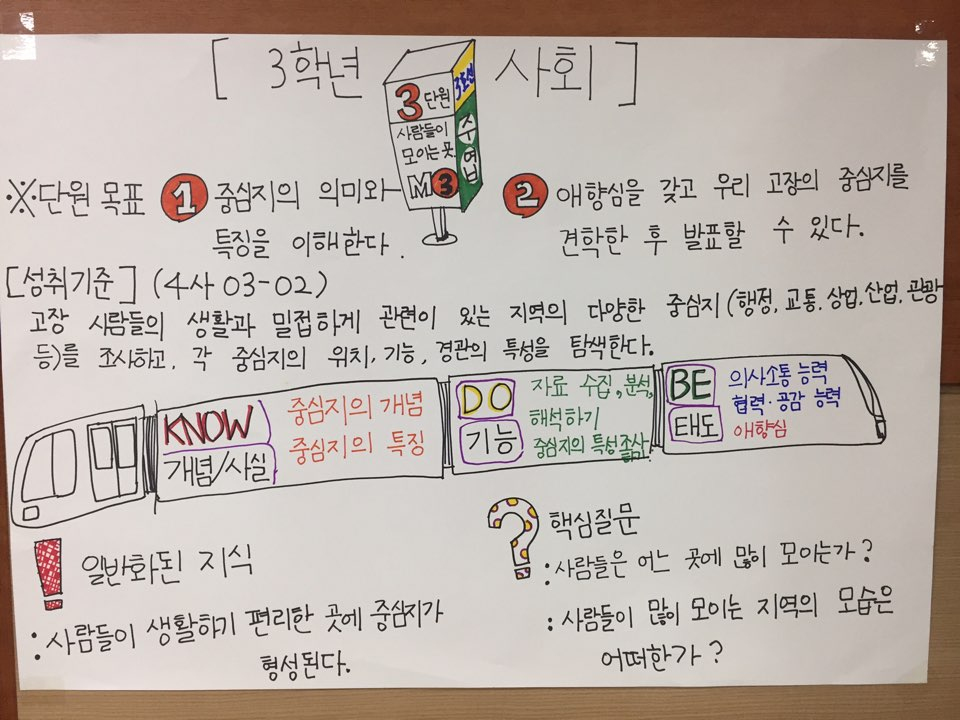 [ 3학년 사회 ]
3단원
사람들이
모이는 곳
M3
3호선
수업
※단원 목표 1 중심지의 의미와
특징을 이해한다.
2 애향심을 갖고 우리 고장의 중심지를
견학한 후 발표할 수 있다.
[성취기준] (4사03-02)
고장 사람들의 생활과 밀접하게 관련이 있는 지역의 다양한 중심지(행정, 교통, 상업, 산업, 관광
등)를 조사하고, 각 중심지의 위치, 기능, 경관의 특성을 탐색한다.
KNOW
개념/사실
중심지의 개념
중심지의 특징
DO
기능
자료 수집, 분석,
해석하기
중심지의 특성
BE
태도
의사소통 능력
협력·공감 능력
애향심
! 일반화된 지식
: 사람들이 생활하기 편리한 곳에 중심지가
형성된다.
? 핵심질문
: 사람들은 어느 곳에 많이 모이는가?
: 사람들이 많이 모이는 지역의 모습은
어떠한가?